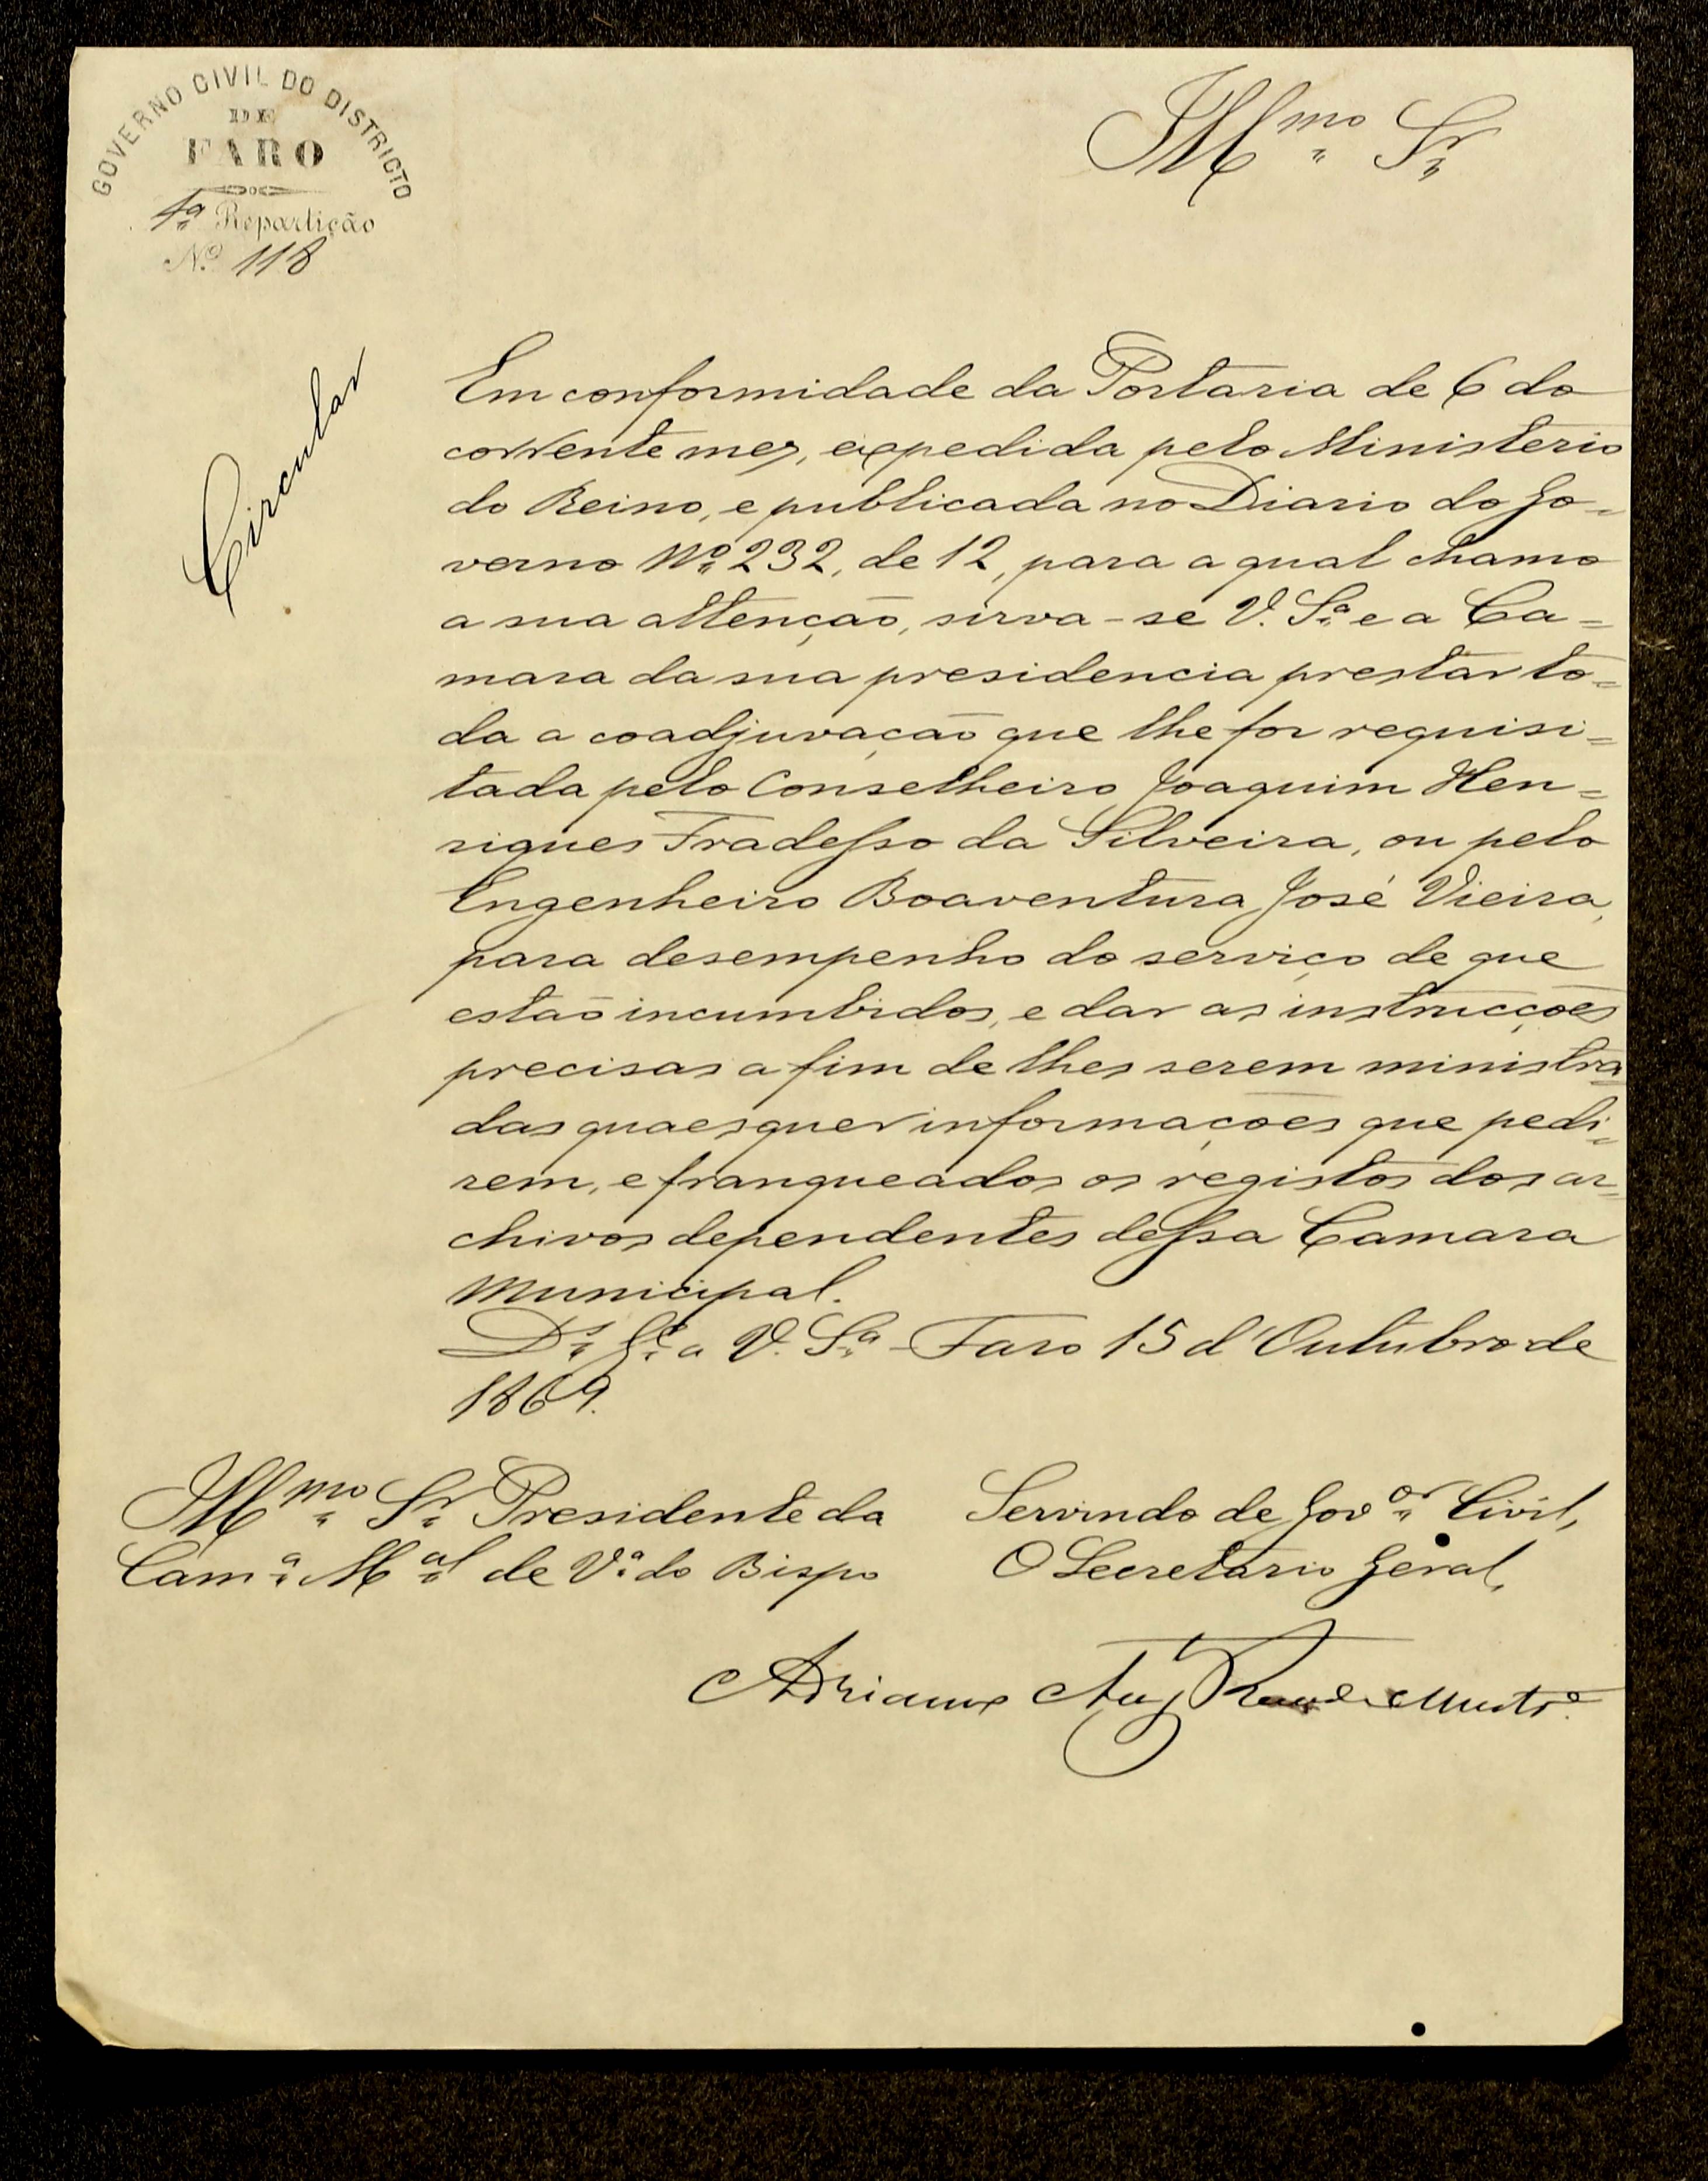 GOVERNO CIVIL DO DISTRICTO
DE
FARO
1ª Repartição
Nº 118
Illmo Sr
Circular
Em conformidade da Portaria de 6 do
corrente mez, expedida pelo Ministerio
do Reino, e publicada no Diario do Go-
verno Nº 232, de 12, para a qual chamo
a sua attenção, sirva-se V. Sª e a Ca=
mara da sua presidencia prestar to=
da a coadjuvação que lhe for requisi=
tada pelo Conselheiro Joaquim Hen=
riques Fradesso da Silveira, ou pelo
Engenheiro Boaventura José Vieira,
para desempenho do serviço de que
estão incumbidos, e dar as instrucções
precisas a fim de lhes serem ministra=
das quaesquer informações que pedi=
rem, e franqueados os registos dos ar=
chivos dependentes dessa Camara
Municipal.
Ds Ge a V. Sª - Faro 15 d'Outubro de
1869.
Illmo Sr Presidente da
Camª Mal de Vª do Bispo
Servindo de Govor Civil,
O Secretario Geral,
Adriano Aug